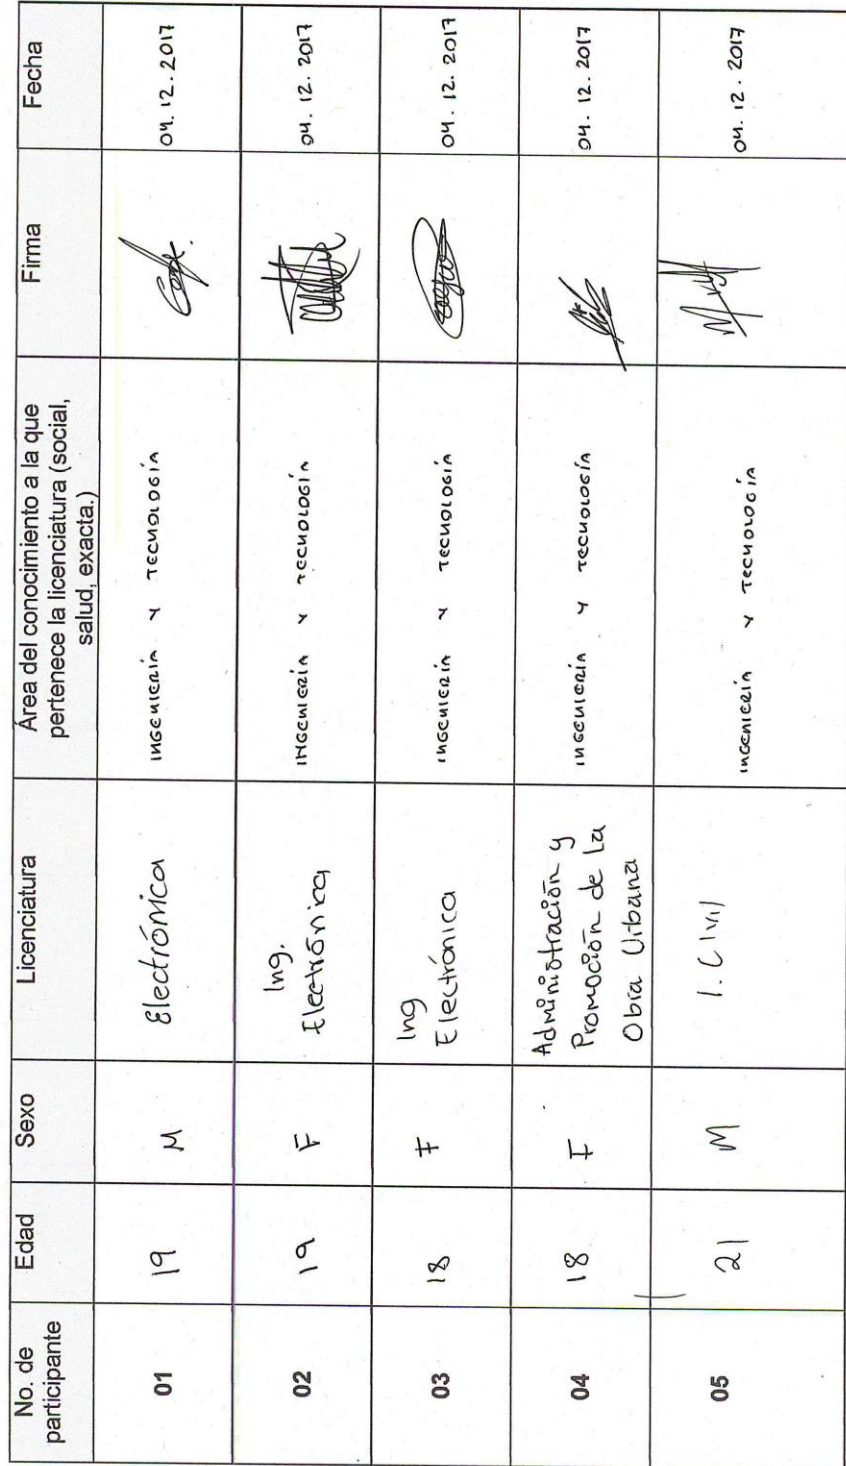 No. de
participante
Edad
Sexo
Licenciatura
Área del conocimiento a la que
pertenece la licenciatura (social,
salud, exacta.)
Firma
Fecha
01
19
M
Electrónica
INGENIERÍA Y TECNOLOGÍA
04.12.2017
02
19
F
Ing.
Electrónica
INGENIERÍA Y TECNOLOGÍA
04.12.2017
03
18
F
Ing
Electrónica
INGENIERÍA Y TECNOLOGÍA
04.12.2017
04
18
F
Administración y
Promoción de la
Obra Urbana
INGENIERÍA Y TECNOLOGÍA
04.12.2017
05
21
M
I. Civil
INGENIERÍA Y TECNOLOGÍA
04.12.2017